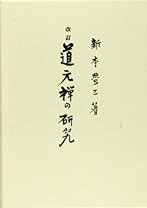 新本豊三著
改訂
道元禅の研究